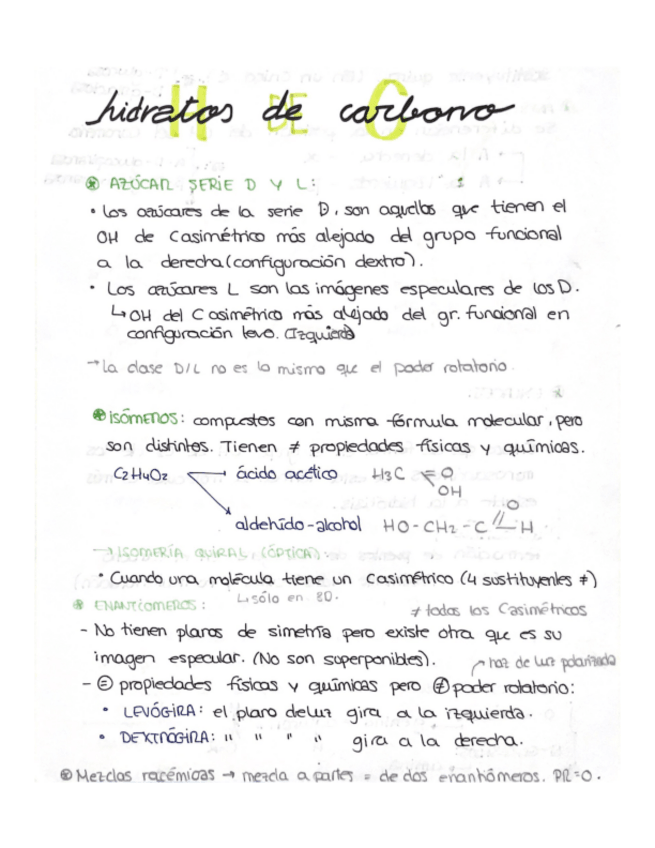 hidratos de carbono
H DE C
⊛ AZÚCAR SERIE D Y L:
• Los azúcares de la serie D, son aquellos que tienen el
OH de Casimétrico más alejado del grupo funcional
a la derecha (configuración dextro).
• Los azúcares L son las imágenes especulares de los D.
↳ OH del C asimétrico más alejado del gr. funcional en
configuración levo. (Izquierda)
→ la clase D/L no es lo mismo que el poder rotatorio.
⊛ ISÓMEROS: compuestos con misma fórmula molecular, pero
son distintos. Tienen ≠ propiedades físicas y químicas.
C2H4O2 → ácido acético H3C O
OH
aldehído-alcohol HO-CH2-C O H
→ ISOMERÍA QUIRAL, (ÓPTICA)
• Cuando una molécula tiene un Casimétrico (4 sustituyentes ≠)
↳ sólo en
⊛ ENANTIOMEROS: ≠ todos los Casimétricos
- No tienen planos de simetría pero existe otra que es su
imagen especular. (No son superponibles). haz de luz polarizada
- ⊜ propiedades físicas y químicas pero ≠ poder rotatorio:
• LEVÓGIRA: el plano de luz gira a la izquierda.
• DEXTRÓGIRA: " " " " gira a la derecha.
⊛ Mezclas racémicas → mezcla a partes = de dos enantiómeros. PR=0.